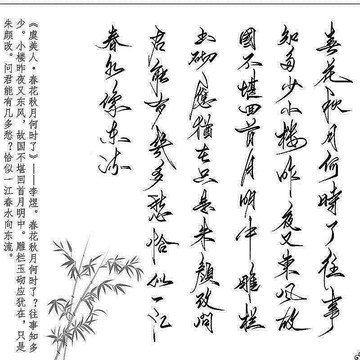 春花秋月何時了往事
知多少小樓昨夜又東風故
國不堪回首月明中雕欄
玉砌應猶在只是朱顏改問
君能有幾多愁恰似一江
春水像東流
《虞美人·春花秋月何时了》——李煜。春花秋月何时了?往事知多
少。小楼昨夜又东风,故国不堪回首月明中。雕栏玉砌应犹在,只是
朱颜改。问君能有几多愁?恰似一江春水向东流。